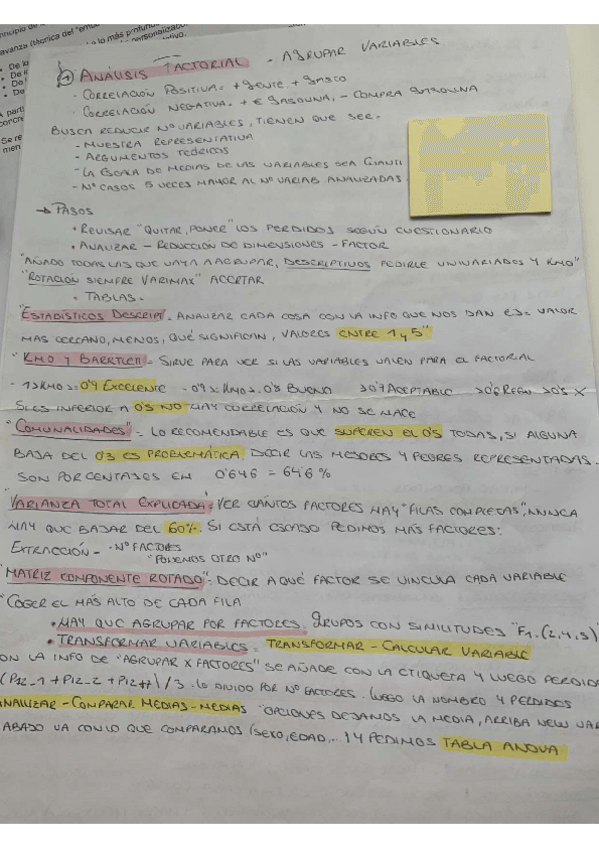 ncipio de
avanza (técnica del "em
lo más profundo
personalizac
tivo.
De lo
De l
Do
De
A parti
conch
Se re
men
ANÁLISIS FACTORIAL - AGRUPAR VARIABLES
· CORRELACIÓN POSITIVA: + GENTE, + GASTO
· CORRELACIÓN NEGATIVA: + € GASOLINA, - COMPRA GASOLINA
BUSCA REDUCIR Nº VARIABLES, TIENEN QUE SER:
- MUESTRA REPRESENTATIVA
- ARGUMENTOS TEÓRICOS
- LA ESCALA DE MEDIAS DE LAS VARIABLES SEA CUANTI
- Nº CASOS 5 VECES MAYOR AL Nº VARIAB ANALIZADAS.
→ PASOS
• REVISAR "QUITAR, PONER" LOS PERDIDOS SEGÚN CUESTIONARIO
• ANALIZAR - REDUCCIÓN DE DIMENSIONES - FACTOR
"AÑADO TODAS LAS QUE VAYA A AGRUPAR, DESCRIPTIVOS PEDIRLE UNIVARIADOS Y KMO"
"ROTACIÓN SIEMPRE VARIMAX" ACEPTAR
• TABLAS -
"ESTADÍSTICOS DESCRIPT. ANALIZAR CADA COSA CON LA INFO QUE NOS DAN EJ= VALOR
MAS CERCANO, MENOS, QUÉ SIGNIFICAN, VALORES ENTRE 1 y 5"
"KMO Y BARKTLETT - SIRVE PARA VER SI LAS VARIABLES VALEN PARA EL FACTORIAL
- 1>KMO>0'9 EXCELENTE - 0'9>KMO>0'8 BUENO >0'7 ACEPTABLE >0'6 REGU >0'5 X
SI ES INFERIOR A 0'5 NO HAY CORRELACIÓN Y NO SE HACE
"COMUNALIDADES" = LO RECOMENDABLE ES QUE SUPEREN EL 0'5 TODAS, SI ALGUNA
BAJA DEL 0'3 ES PROBLEMÁTICA DECIR LAS MEJORES Y PEORES REPRESENTADAS.
SON PORCENTAJES EM 0'646 = 64'6 %
"VARIANZA TOTAL EXPLICADA: VER CUÁNTOS FACTORES HAY "FILAS COMPLETAS", NUNCA
HAY QUE BAJAR DEL 60%. SI ESTÁ ESCASO PEDIMOS MÁS FACTORES:
EXTRACCIÓN - · Nº FACTORES
"PONEMOS OTRO Nº"
"MATRIZ COMPONENTE ROTADO": DECIR A QUÉ FACTOR SE VINCULA CADA VARIABLE
"COGER EL MÁS ALTO DE CADA FILA
• HAY QUE AGRUPAR POR FACTORES. GRUPOS CON SIMILITUDES "F1. (2,4,5)
• TRANSFORMAR VARIABLES = TRANSFORMAR - CALCULAR VARIABLE
ON LA INFO DE "AGRUPAR X FACTORES" SE AÑADE CON LA ETIQUETA Y LUEGO PERDIDO
(P12_1 + P12_2 + P12_4)/3. LO DIVIDO POR Nº FACTORES. LUEGO LA NOMBRO Y PERDIDOS
ANALIZAR - COMPARAR MEDIAS - MEDIAS "OPCIONES DEJAMOS LA MEDIA, ARRIBA NEW VAR
ABAJO VA CON LO QUE COMPARAMOS (SEXO, EDAD...) Y PEDIMOS TABLA ANOVA